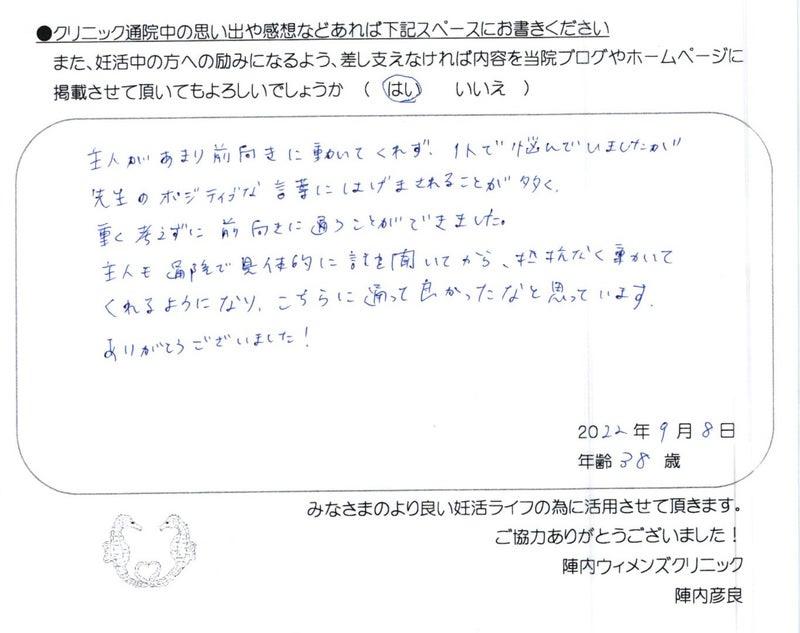 ●クリニック通院中の思い出や感想などあれば下記スペースにお書きください
また、妊活中の方への励みになるよう、差し支えなければ内容を当院ブログやホームページに
掲載させて頂いてもよろしいでしょうか ( はい いいえ )
主人があまり前向きに動いてくれず、1人で悩んでいましたが
先生のポジティブな言葉にはげまされることが多く、
重く考えずに前向きに通うことができました。
主人も通院で具体的に話を聞いてから、抵抗なく動いて
くれるようになり、こちらに通って良かったなと思っています。
ありがとうございました!
2022年9月8日
年齢 38 歳
みなさまのより良い妊活ライフの為に活用させて頂きます。
ご協力ありがとうございました!
陣内ウィメンズクリニック
陣内彦良